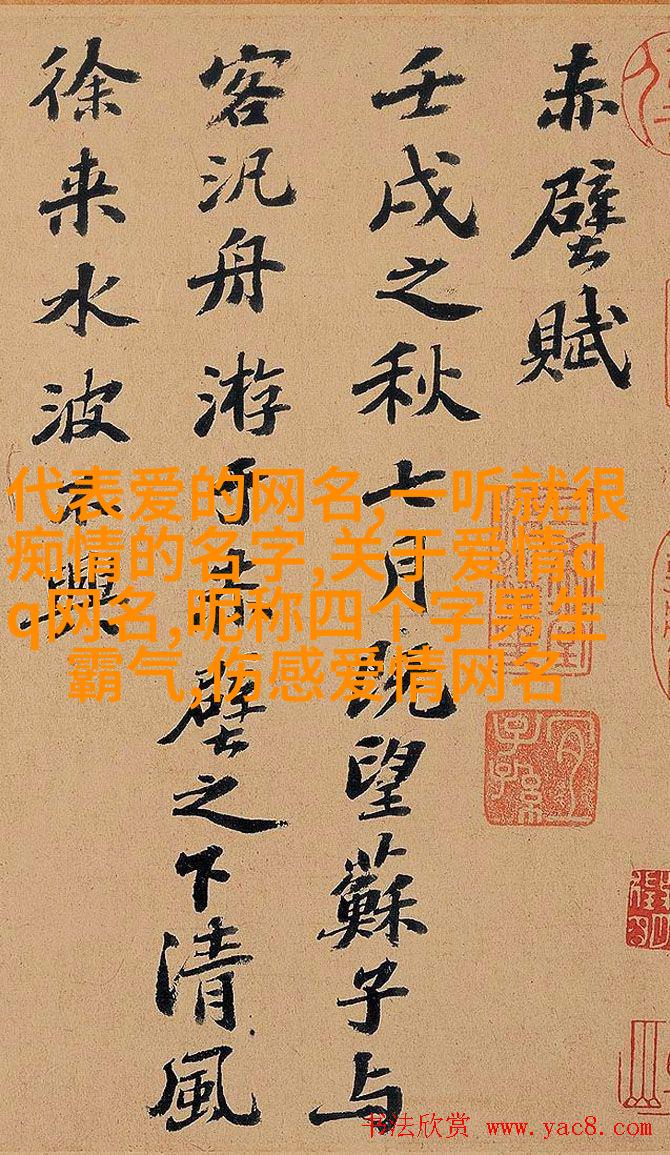 赤壁賦
壬戌之秋七月既望蘇子与
客汎舟游于赤壁之下清風
徐来水波不興
代表爱的网名,一听就很
痴情的名字,关于爱情q
q网名,昵称四个字男生
霸气,伤感爱情网名
书法欣赏 www.yac8.com